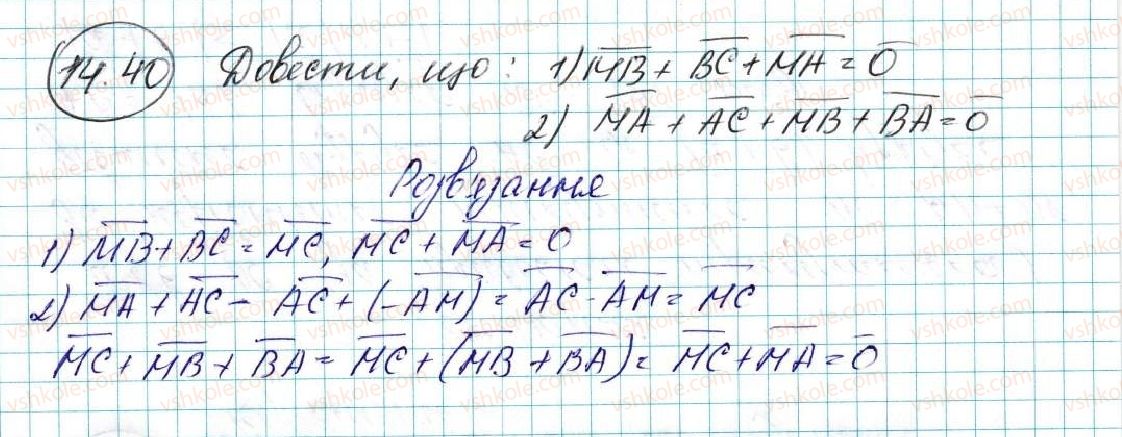 14.40 Довести, що: 1) MB + BC + MA = 0
2) MA + AC + MB + BA = 0
Розв'язання
1) MB + BC = MC, MC + MA = 0
2) MA + AC - AC + (-AM) = AC - AM = MC
MC + MB + BA = MC + (MB + BA) = MC + MA = 0